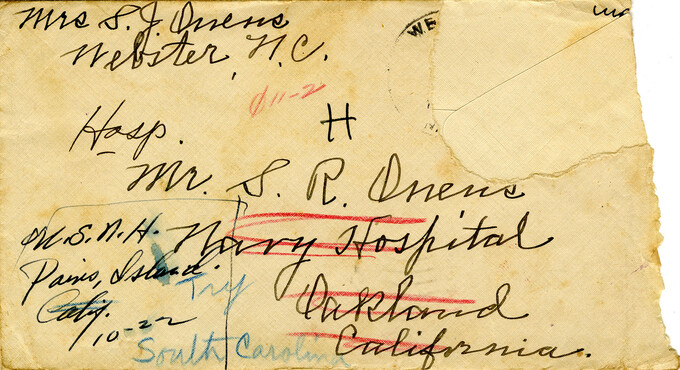 Mrs S. J. Owens
Webster, N.C.
WE
11-2
H
Hosp.
Mr. S. R. Owens
Navy Hospital
Oakland
California.
U.S.N.H.
Paris, Island.
Calif.
10-22
Try
South Carolina